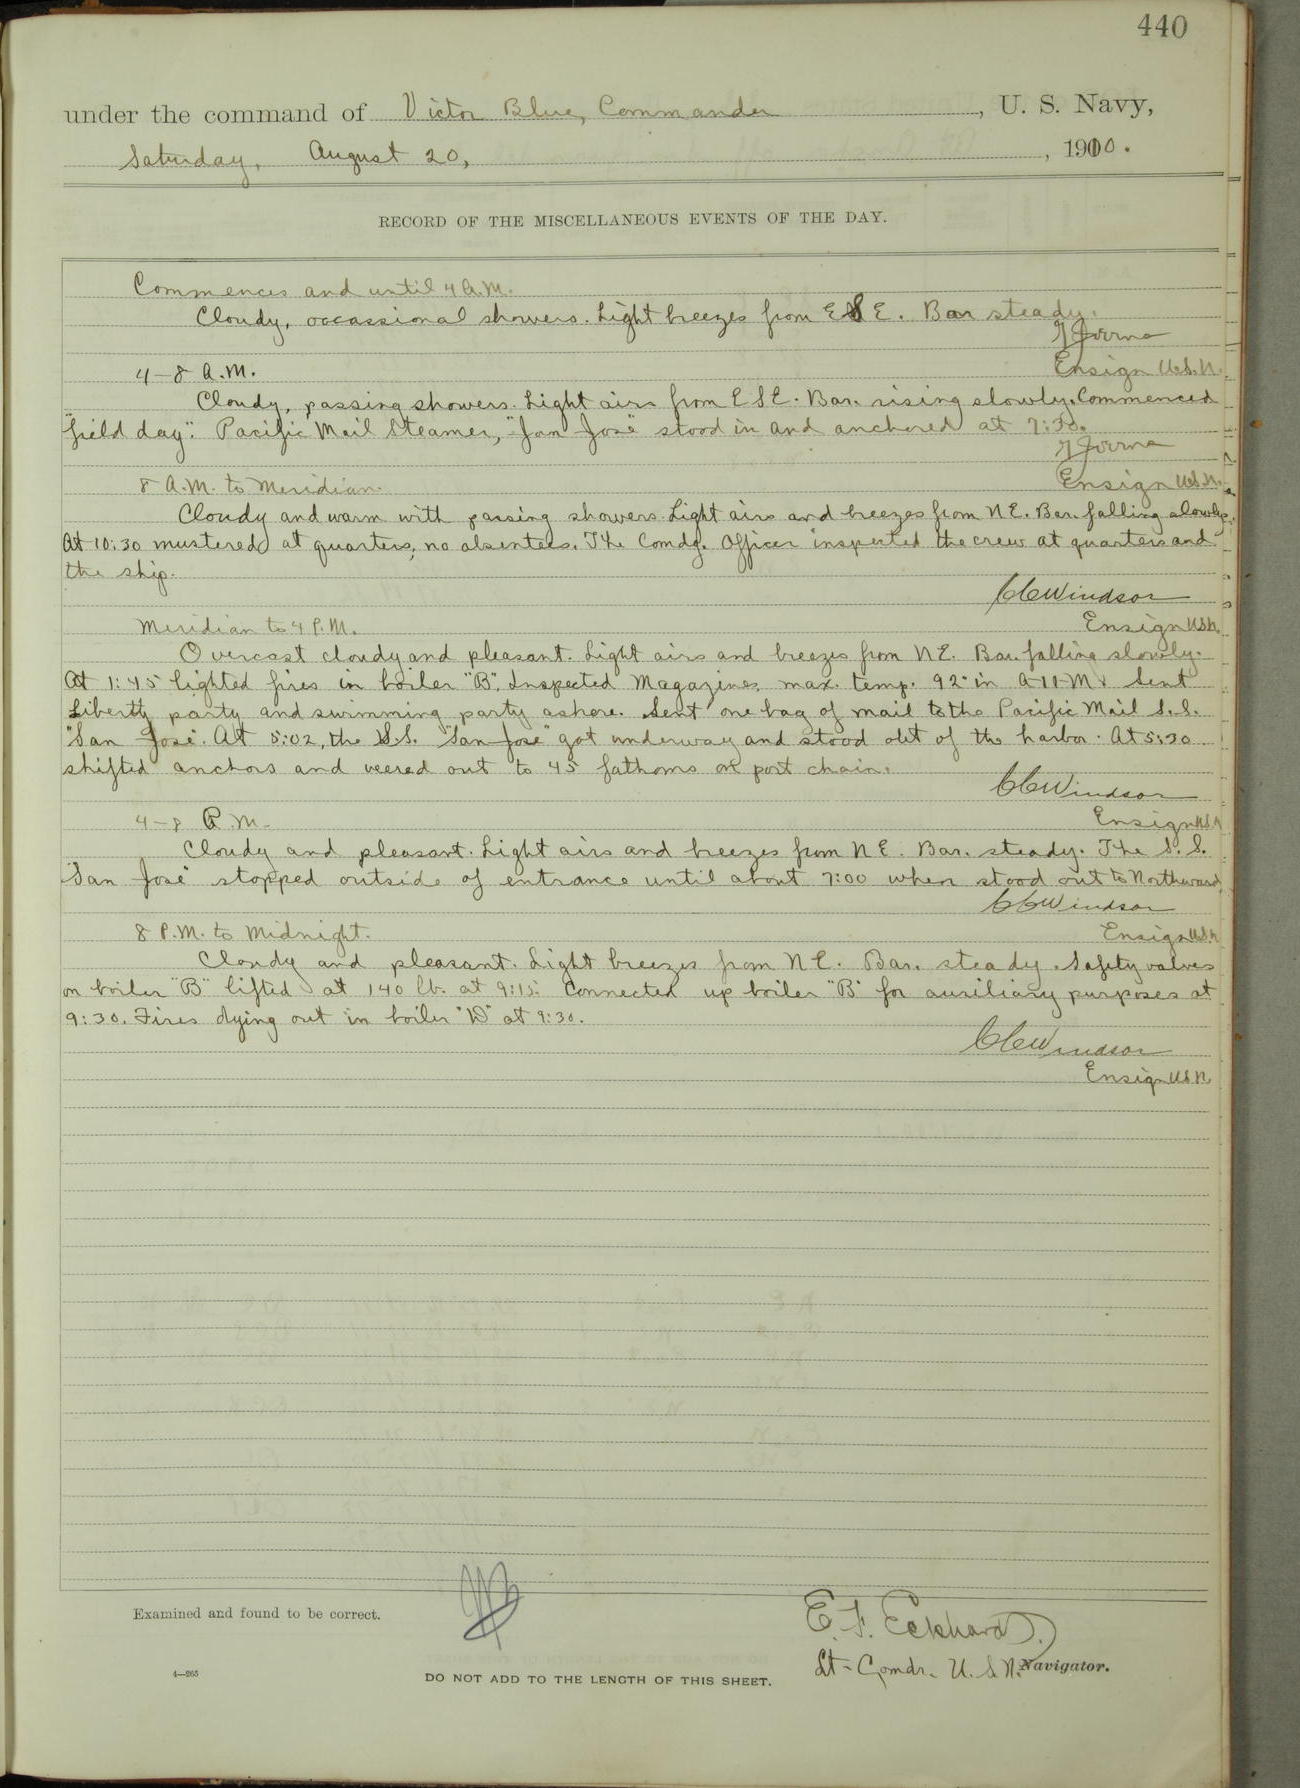 440
under the command of Victor Blue, Commander, U. S. Navy,
Saturday, August 20, , 1910.
RECORD OF THE MISCELLANEOUS EVENTS OF THE DAY.
Commences and until 4 A.M.
Cloudy, occassional showers. Light breezes from ESE. Bar steady.
4-8 A.M.
Ensign U.S.N.
Cloudy, passing showers. Light airs from ESE. Bar. rising slowly. Commenced
"field day". Pacific Mail Steamer, "San José" stood in and anchored at 7:30.
8 A.M. to Meridian.
Ensign U.S.N.
Cloudy and warm with passing showers. Light airs and breezes from NE. Bar. falling slowly.
At 10:30 mustered at quarters, no absentees. The Comdg. Officer inspected the crew at quarters and
the ship.
CCWindsor
Meridian to 4 P.M.
Ensign U.S.N.
Overcast cloudy and pleasant. Light airs and breezes from NE. Bar. falling slowly.
At 1:45 lighted fires in boiler "B". Inspected Magazines, max. temp. 92° in A-11-M. Sent
Liberty party and swimming party ashore. Sent one bag of mail to the Pacific Mail S.S.
"San José". At 5:02, the S.S. "San José" got underway and stood out of the harbor. At 5:30
shifted anchors and veered out to 45 fathoms on port chain.
CCWindsor
4-8 P.M.
Ensign U.S.N.
Cloudy and pleasant. Light airs and breezes from NE. Bar. steady. The S.S.
"San José" stopped outside of entrance until about 7:00 when stood out to Northward.
CCWindsor
8 P.M. to Midnight.
Ensign U.S.N.
Cloudy and pleasant. Light breezes from NE. Bar. steady. Safety valves
on boiler "B" lifted at 140 lb. at 9:15. Connected up boiler "B" for auxiliary purposes at
9:30. Fires dying out in boiler "D" at 9:30.
CCWindsor
Ensign U.S.N.
Examined and found to be correct.
E. F. Eckhardt.
Lt-Comdr. U.S.N. Navigator.
4—265
DO NOT ADD TO THE LENGTH OF THIS SHEET.